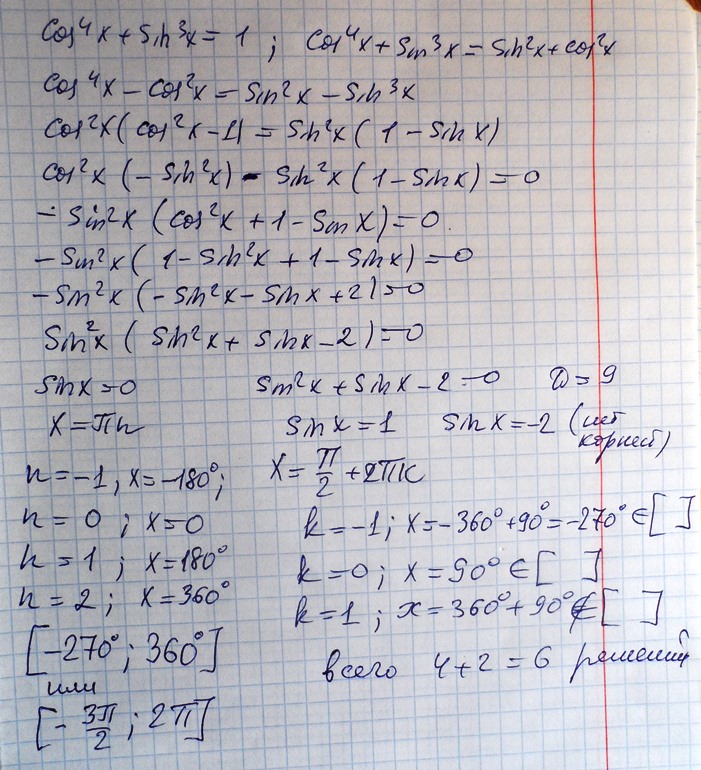 cos⁴x + sin³x = 1 ; cos⁴x + sin³x = sin²x + cos²x
cos⁴x − cos²x = sin²x − sin³x
cos²x (cos²x − 1) = sin²x (1 − sinx)
cos²x (− sin²x) − sin²x (1 − sinx) = 0
− sin²x (cos²x + 1 − sinx) = 0.
− sin²x (1 − sin²x + 1 − sinx) = 0
− sin²x (− sin²x − sinx + 2) = 0
sin²x (sin²x + sinx − 2) = 0
sinx = 0 sin²x + sinx − 2 = 0 D = 9
x = πn sinx = 1 sinx = −2 (нет корней)
n = −1, x = −180°; x = π/2 + 2πk
n = 0 ; x = 0 k = −1; x = −360° + 90° = −270° ∈ [ ]
n = 1 ; x = 180° k = 0; x = 90° ∈ [ ]
n = 2 ; x = 360° k = 1 ; x = 360° + 90° ∉ [ ]
[−270° ; 360°] всего 4 + 2 = 6 решений
или
[− 3π/2 ; 2π]